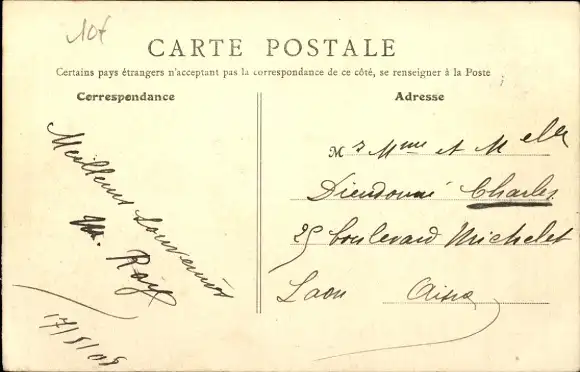 10f
CARTE POSTALE
Certains pays étrangers n'acceptant pas la correspondance de ce côté, se renseigner à la Poste
Correspondance
Meilleurs Souvenirs
M. Roy
17/8/08
Adresse
Mr Mme et Melle
Dieudonné Charles
25 boulevard Michelet
Laon Aisne